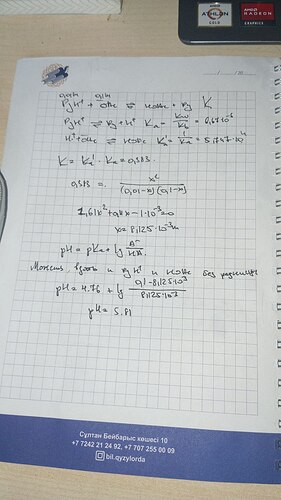 AMD
ATHLON
GOLD
AMD
RADEON
GRAPHICS
0,01M 0,1M
PyH⁺ + OAc⁻ ⇌ HOAc + Py K
PyH⁺ ⇌ Py + H⁺ Ka = Kw/Kb = 6,67·10⁻⁶
H⁺ + OAc⁻ ⇌ HOAc Ka' = 1/Ka = 5,757·10⁴
K = Ka' · Ka = 0,383
0,383 = x²/((0,01-x)(0,1-x))
x = 8,125·10⁻³ M
pH = pKa + lg A⁻/HA
Можешь взять и PyH⁺ и HOAc без разницы
pH = 4.76 + lg (0,1 - 8,125·10⁻³)/(8,125·10⁻³)
pH = 5.81
Сұлтан Бейбарыс көшесі 10
+7 7242 21 24 92, +7 707 255 00 09
bil.qyzylorda